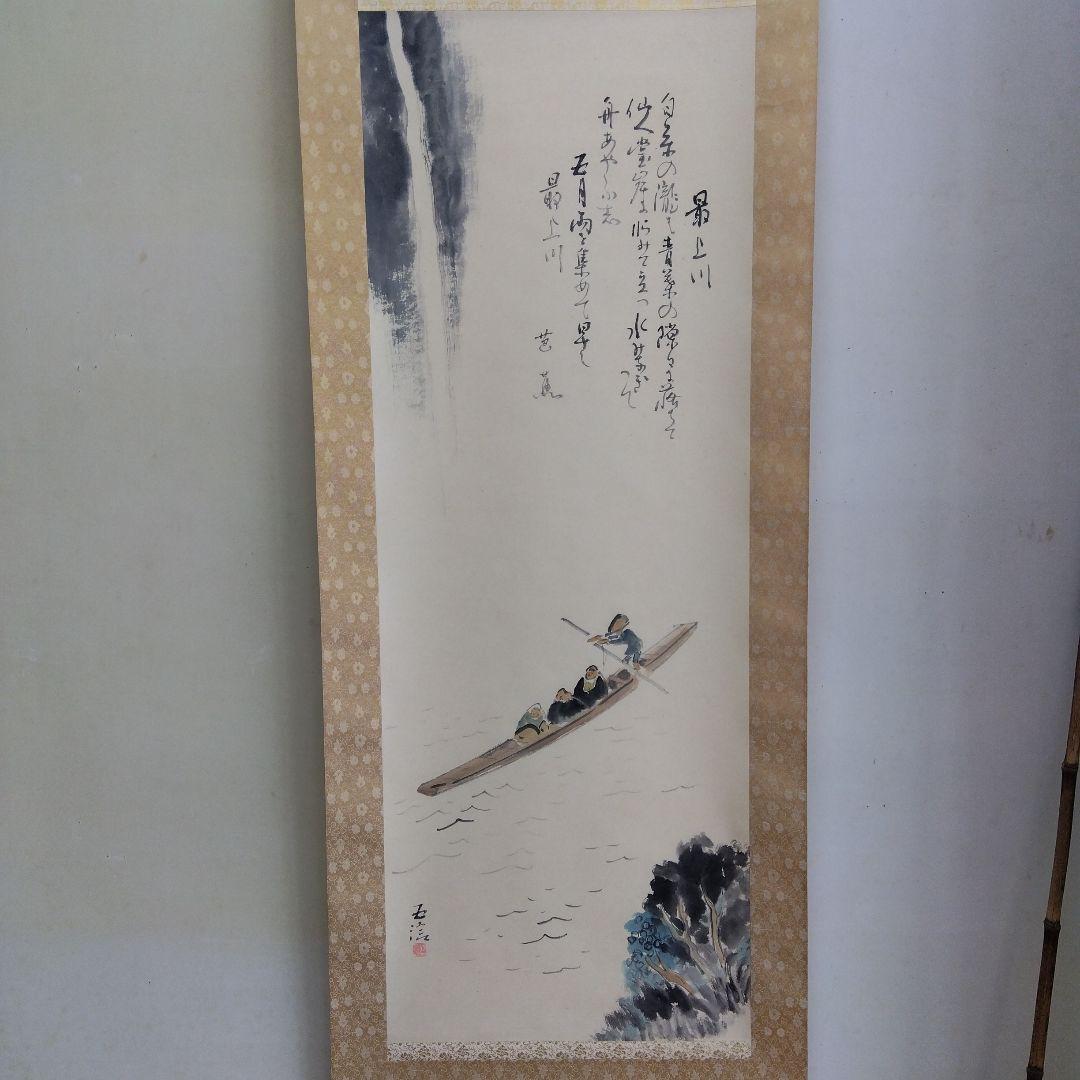 最上川
白糸の瀧は青葉の隙々に落ちて
仙人堂岸に臨みて立つ水みなぎつて
舟あやふし
五月雨を集めて早し
最上川
芭蕉